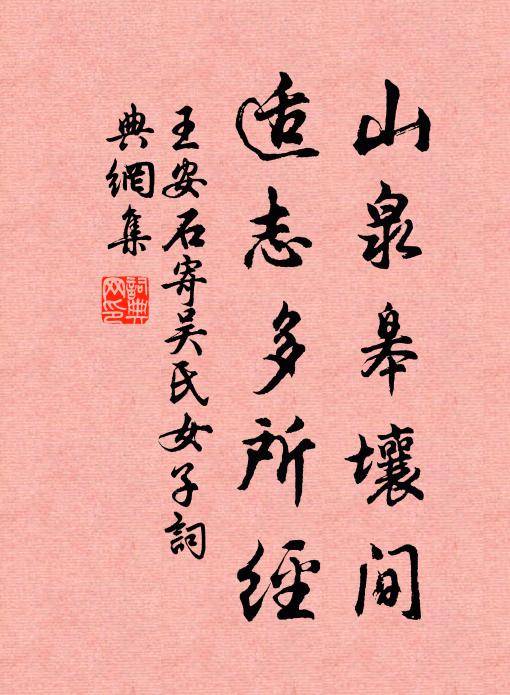 山泉皋壤间
适志多所經
王安石寄吴氏女子詞
典網集
詞典
网印